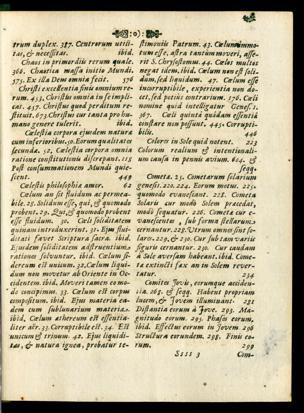 )o(
trum duplex. 387. Centrorum utili-
tas, & necessitas. ibid.
Chaos in primordiis rerum quale.
366. Chaotica massa initio Mundi.
375. Ex illa Deus omnia fecit. 376
Christi excellentia sinè omnium re-
rum. 453. Christus omnia in se impli-
cat. 457. Christus quod perditum re-
stituit. 673. Christus cur tanta pro hu-
mano genere tulerit. ibid.
Cælestia corpora ejusdem natura
cum inferioribus. 10. Eorum qualitates
secunda. 32. Cælestia corpora omnia
ratione constitutionis discrepant. 115
Post consummationem Mundi quie-
scent. 449
Cælestis philosophia amor.
Cælum an sit fluidum ac permea-
bile. 25. Solidum esse, qui, & quomodo
probent. 29. Qui, & quomodo probent
esse fluidum. 30. Cæli soliditatem
quinam introduxerint. 31. Ejus flui-
ditati favet Scriptura sacra. ibid.
Ejusdem soliditatem adstruentium
rationes solvuntur. ibid. Cælum si-
dereum est unicum. 32. Cælum liqui-
dum non movetur ab Oriente in Oc-
cidentem. ibid. Moveri tamen eo mo-
do concipimus. 33. Cælum est corpus
compositum. ibid. Ejus materia ea-
dem cum sublunarium materia.
ibid. Cælum æthereum est essentia-
liter aër. 33. Corruptibile est. 34. Est
unicum & trinum. 42. Ejus liquidi-
tas, & natura ignea, probatur te-
stimoniis Patrum. 43. Cælum immo-
tum esse, astra tantùm moveri, asse-
rit S. Chrysostomus. 44. Cælos multos
negat idem. ibid. Cælum non esse soli-
dum, sed liquidum. 47. Cælum esse
incorruptibile, experientia non do-
cet, sed potiùs contrarium. 176. Cæli
nomine quid intelligatur Genes. 1.
367. Cæli quinta quadam essentiâ
constare non possunt. 445. Corrupti-
bilis. 446
Colores in Sole quid notent. 223
Colorum realium & intentionali-
um causa in pennis avium. 614. &
seqq.
Cometa. 23. Cometarum solarium
genesis. 220. 224. Eorum motus. 225.
quomodo evanescant. 225. Cometa
Solaris cur modo Solem præcedat,
modò sequatur. 226. Cometa cur e-
vanescentes, sub forma stellarum
cernantur. 228. Utrum omnes sint so-
lares. 229. & 230. Cur sub tam variis
figuris cernantur. 230. Cur caudam
à Sole aversam habeant. ibid. Come-
ta extincti fax an in Solem rever-
tatur. 234
Comites Jovis, eorumque acciden-
tia. 265. & seqq. Habent proprium
lucem, & Jovem illuminant. 231
Distantia eorum à Jove. 295. Ma-
gnitudo eorum. 295. Phases eorum,
ibid. Effectus eorum in Jovem 296
Structura eorundem. 298. Finis eo-
rum. 299
Ssss 3 Com-